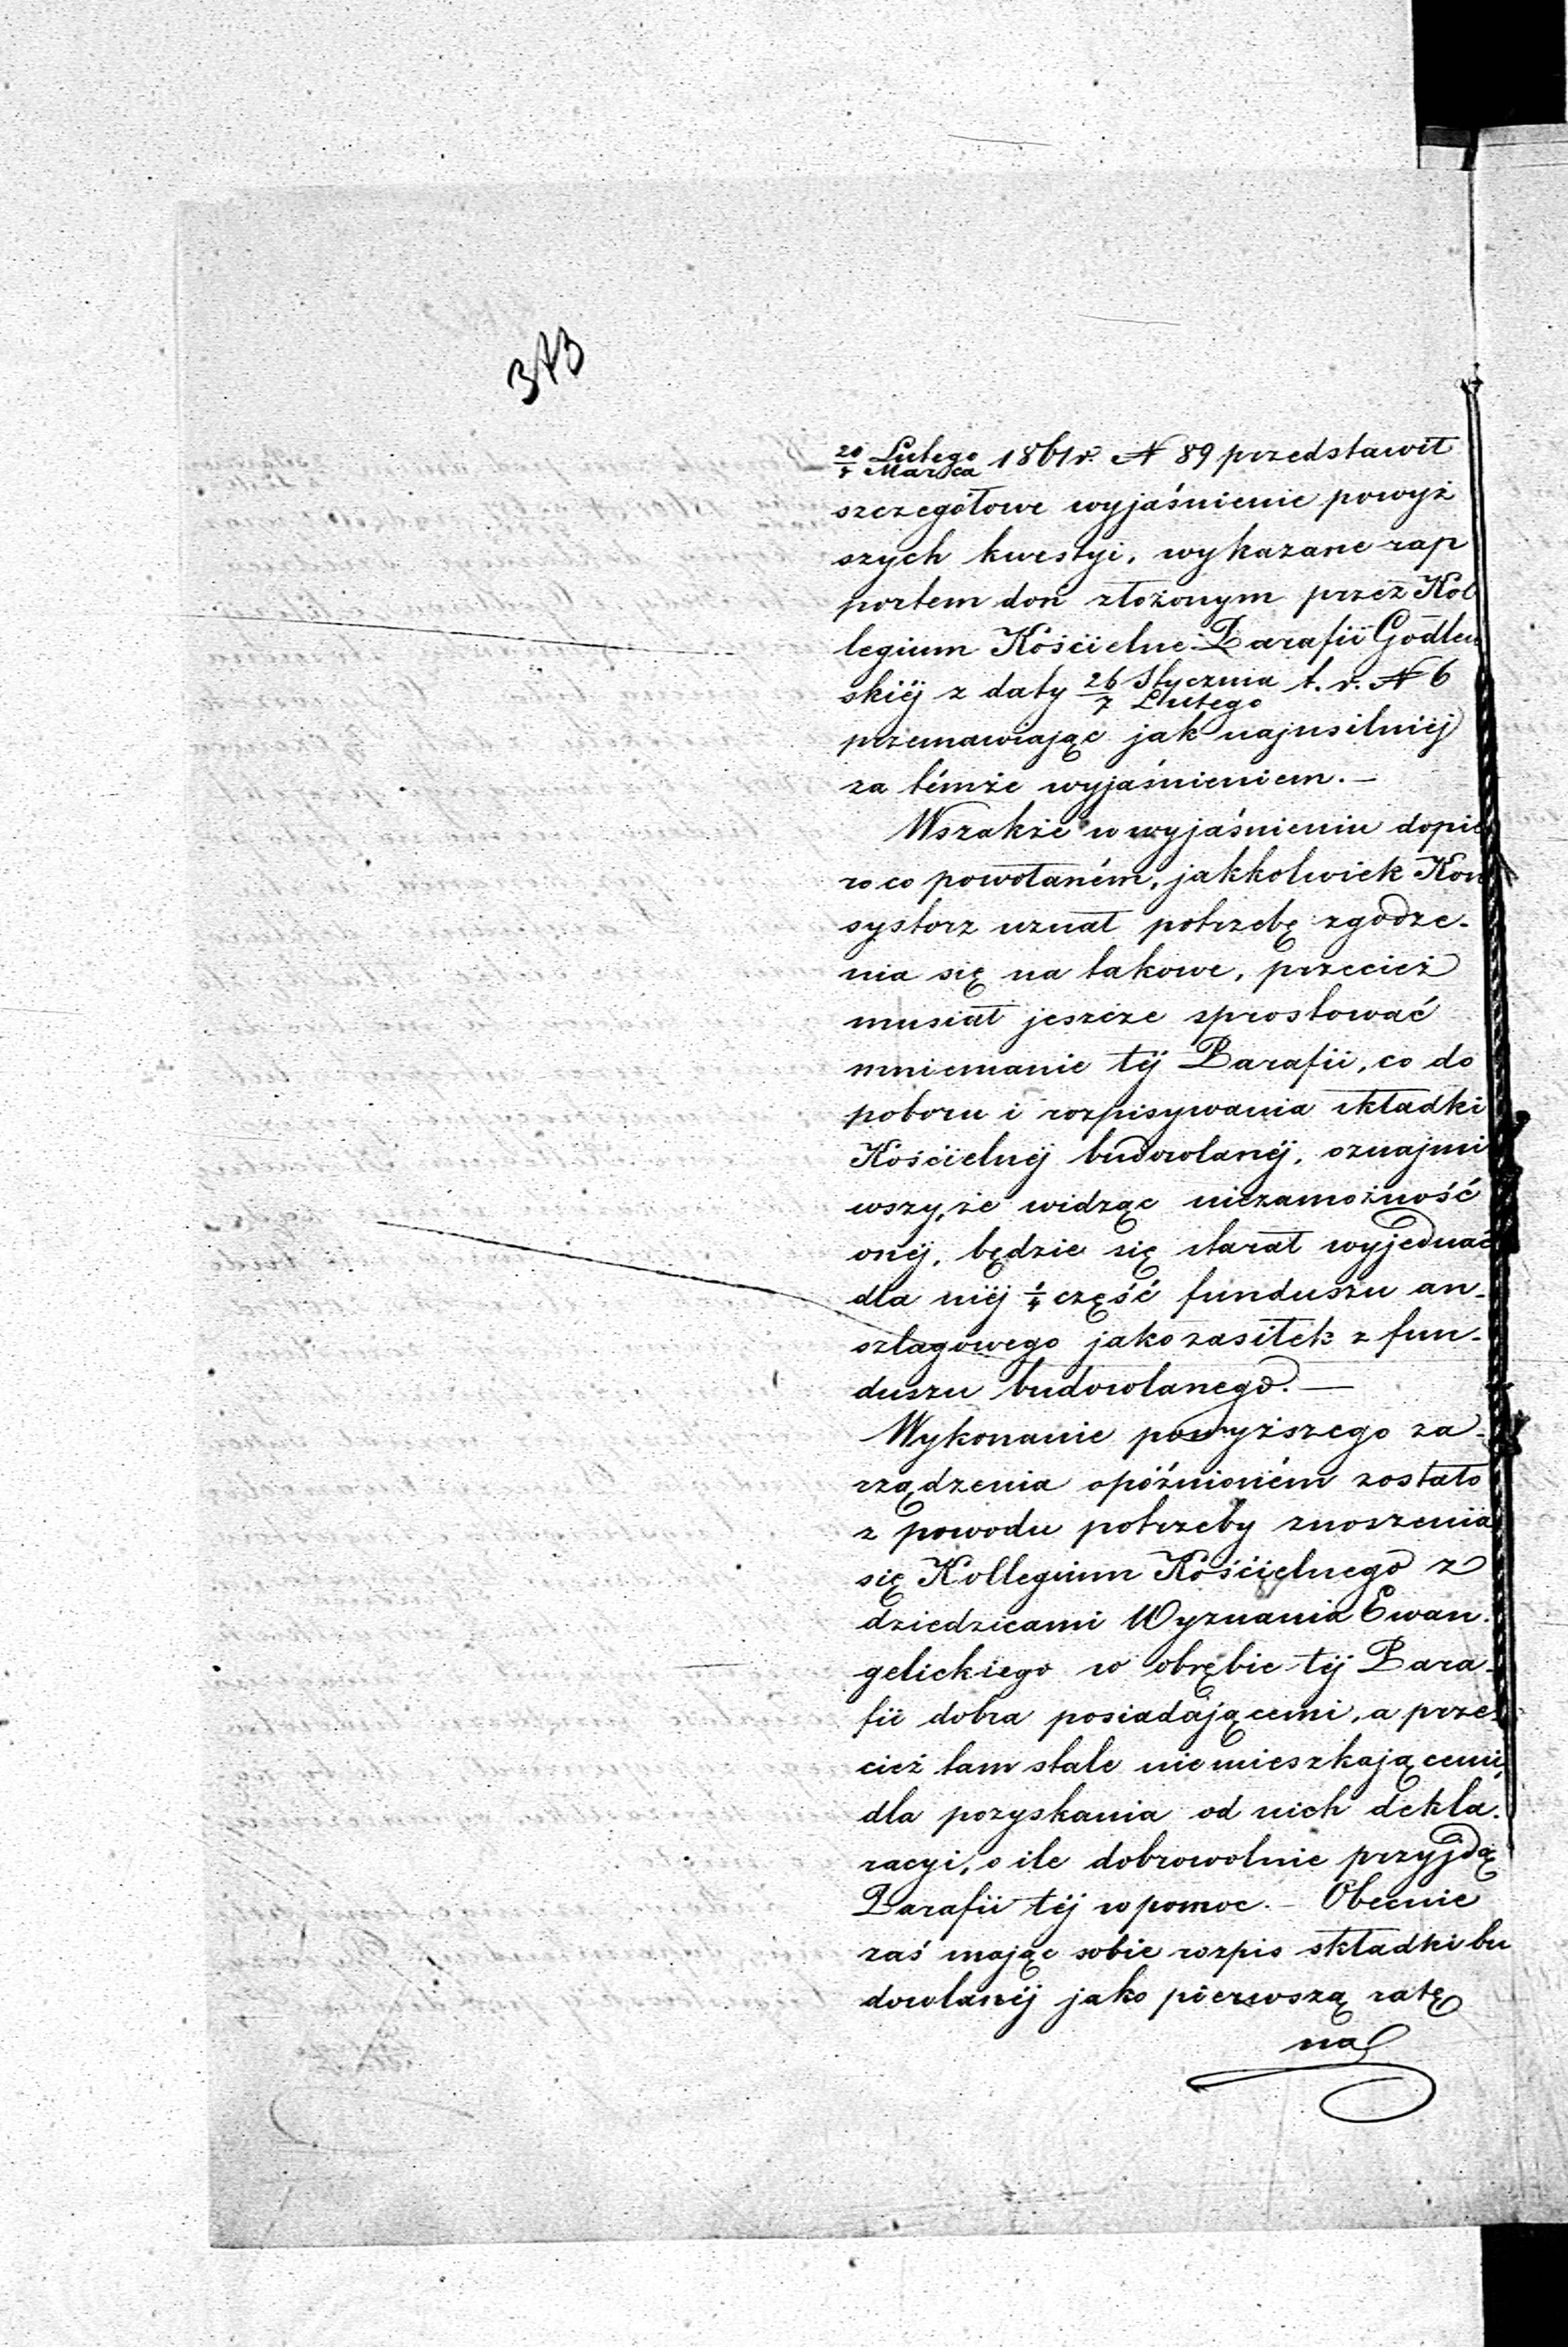 373
20/4 Lutego/Marca 1861 r. N 89 przedstawił
szczegółowe wyjaśnienie powyż
szych kwestyi, wykazane rap
portem doń złożonym przez Kol
legium Kościelne Parafii Godlew
skiéj z daty 26/7 Stycznia/Lutego t. r. N 6
przemawiając jak najusilniéj
za témże wyjaśnieniem. —
Wszakże w wyjaśnieniu dopie
ro co powołaném, jakkolwiek Kon
systorz uznał potrzebę zgodze-
nia się na takowe, przecież
musiał jeszcze sprostować
mniemanie téj Parafii, co do
poboru i rozpisywania składki
Kościelnéj budowlanéj, oznajmi
wszy, że widząc niezamożność
onéj, będzie się starał wyjednać
dla niéj 1/4 część funduszu an-
szlagowego jako zasiłek z fun-
duszu budowlanego. —
Wykonanie powyższego za-
rządzenia opóźnioném zostało
z powodu potrzeby znoszenia
się Kollegium Kościelnego z
dziedzicami Wyznania Ewan-
gelickiego w obrębie téj Para-
fii dobra posiadającemi, a prze-
cież tam stale niemieszkającemi,
dla pozyskania od nich dekla-
racyi, o ile dobrowolnie przyjdą
Parafii téj w pomoc. — Obecnie
zaś mając sobie rozpis składki bu
dowlanéj jako pierwszą ratę
na